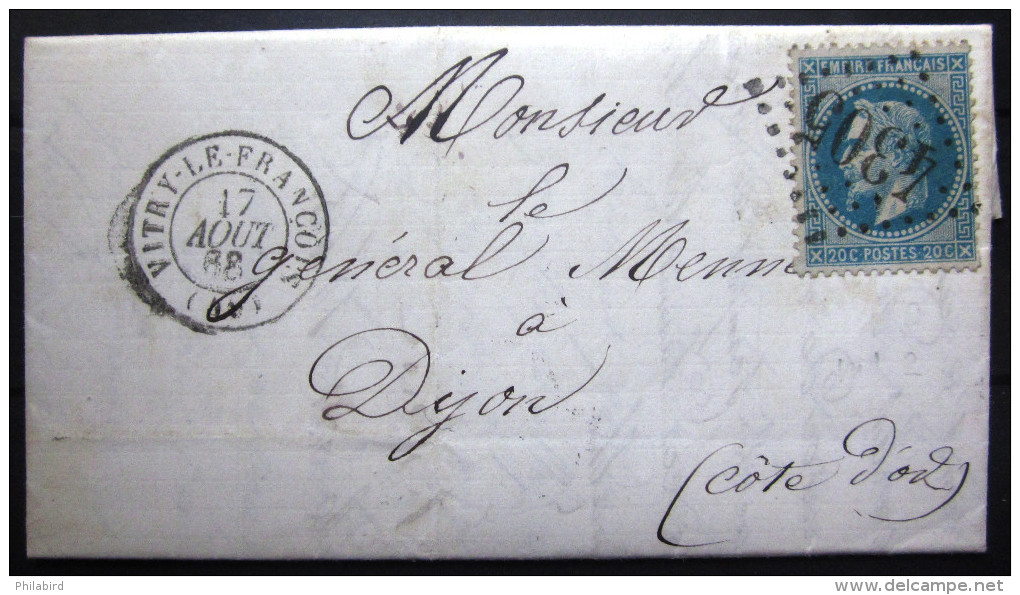 Monsieur
le
général Menne
à
Dijon
(côte d'or)
VITRY-LE-FRANÇOIS
17
AOUT
68
EMPIRE FRANÇAIS
20C POSTES 20C
Philabird
www.delcampe.net